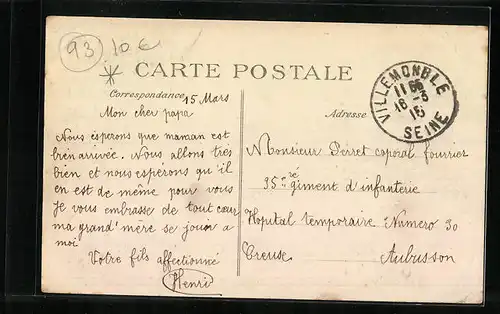 93 10€
CARTE POSTALE
Correspondance 15 Mars
Adresse
VILLEMOMBLE
16-3
15
SEINE
Mon cher papa
Nous esperons que maman est
bien arrivée. Nous allons très
bien et nous esperons qu'il
en est de même pour vous
Je vous embrasse de tout cœur
ma grand'mère se jouin a
moi
Votre fils affectionné
Henri
Monsieur Perret coporal fourrier
35 giment d'infanterie
Hopital temporaire Numero 30
Creuse Aubusson